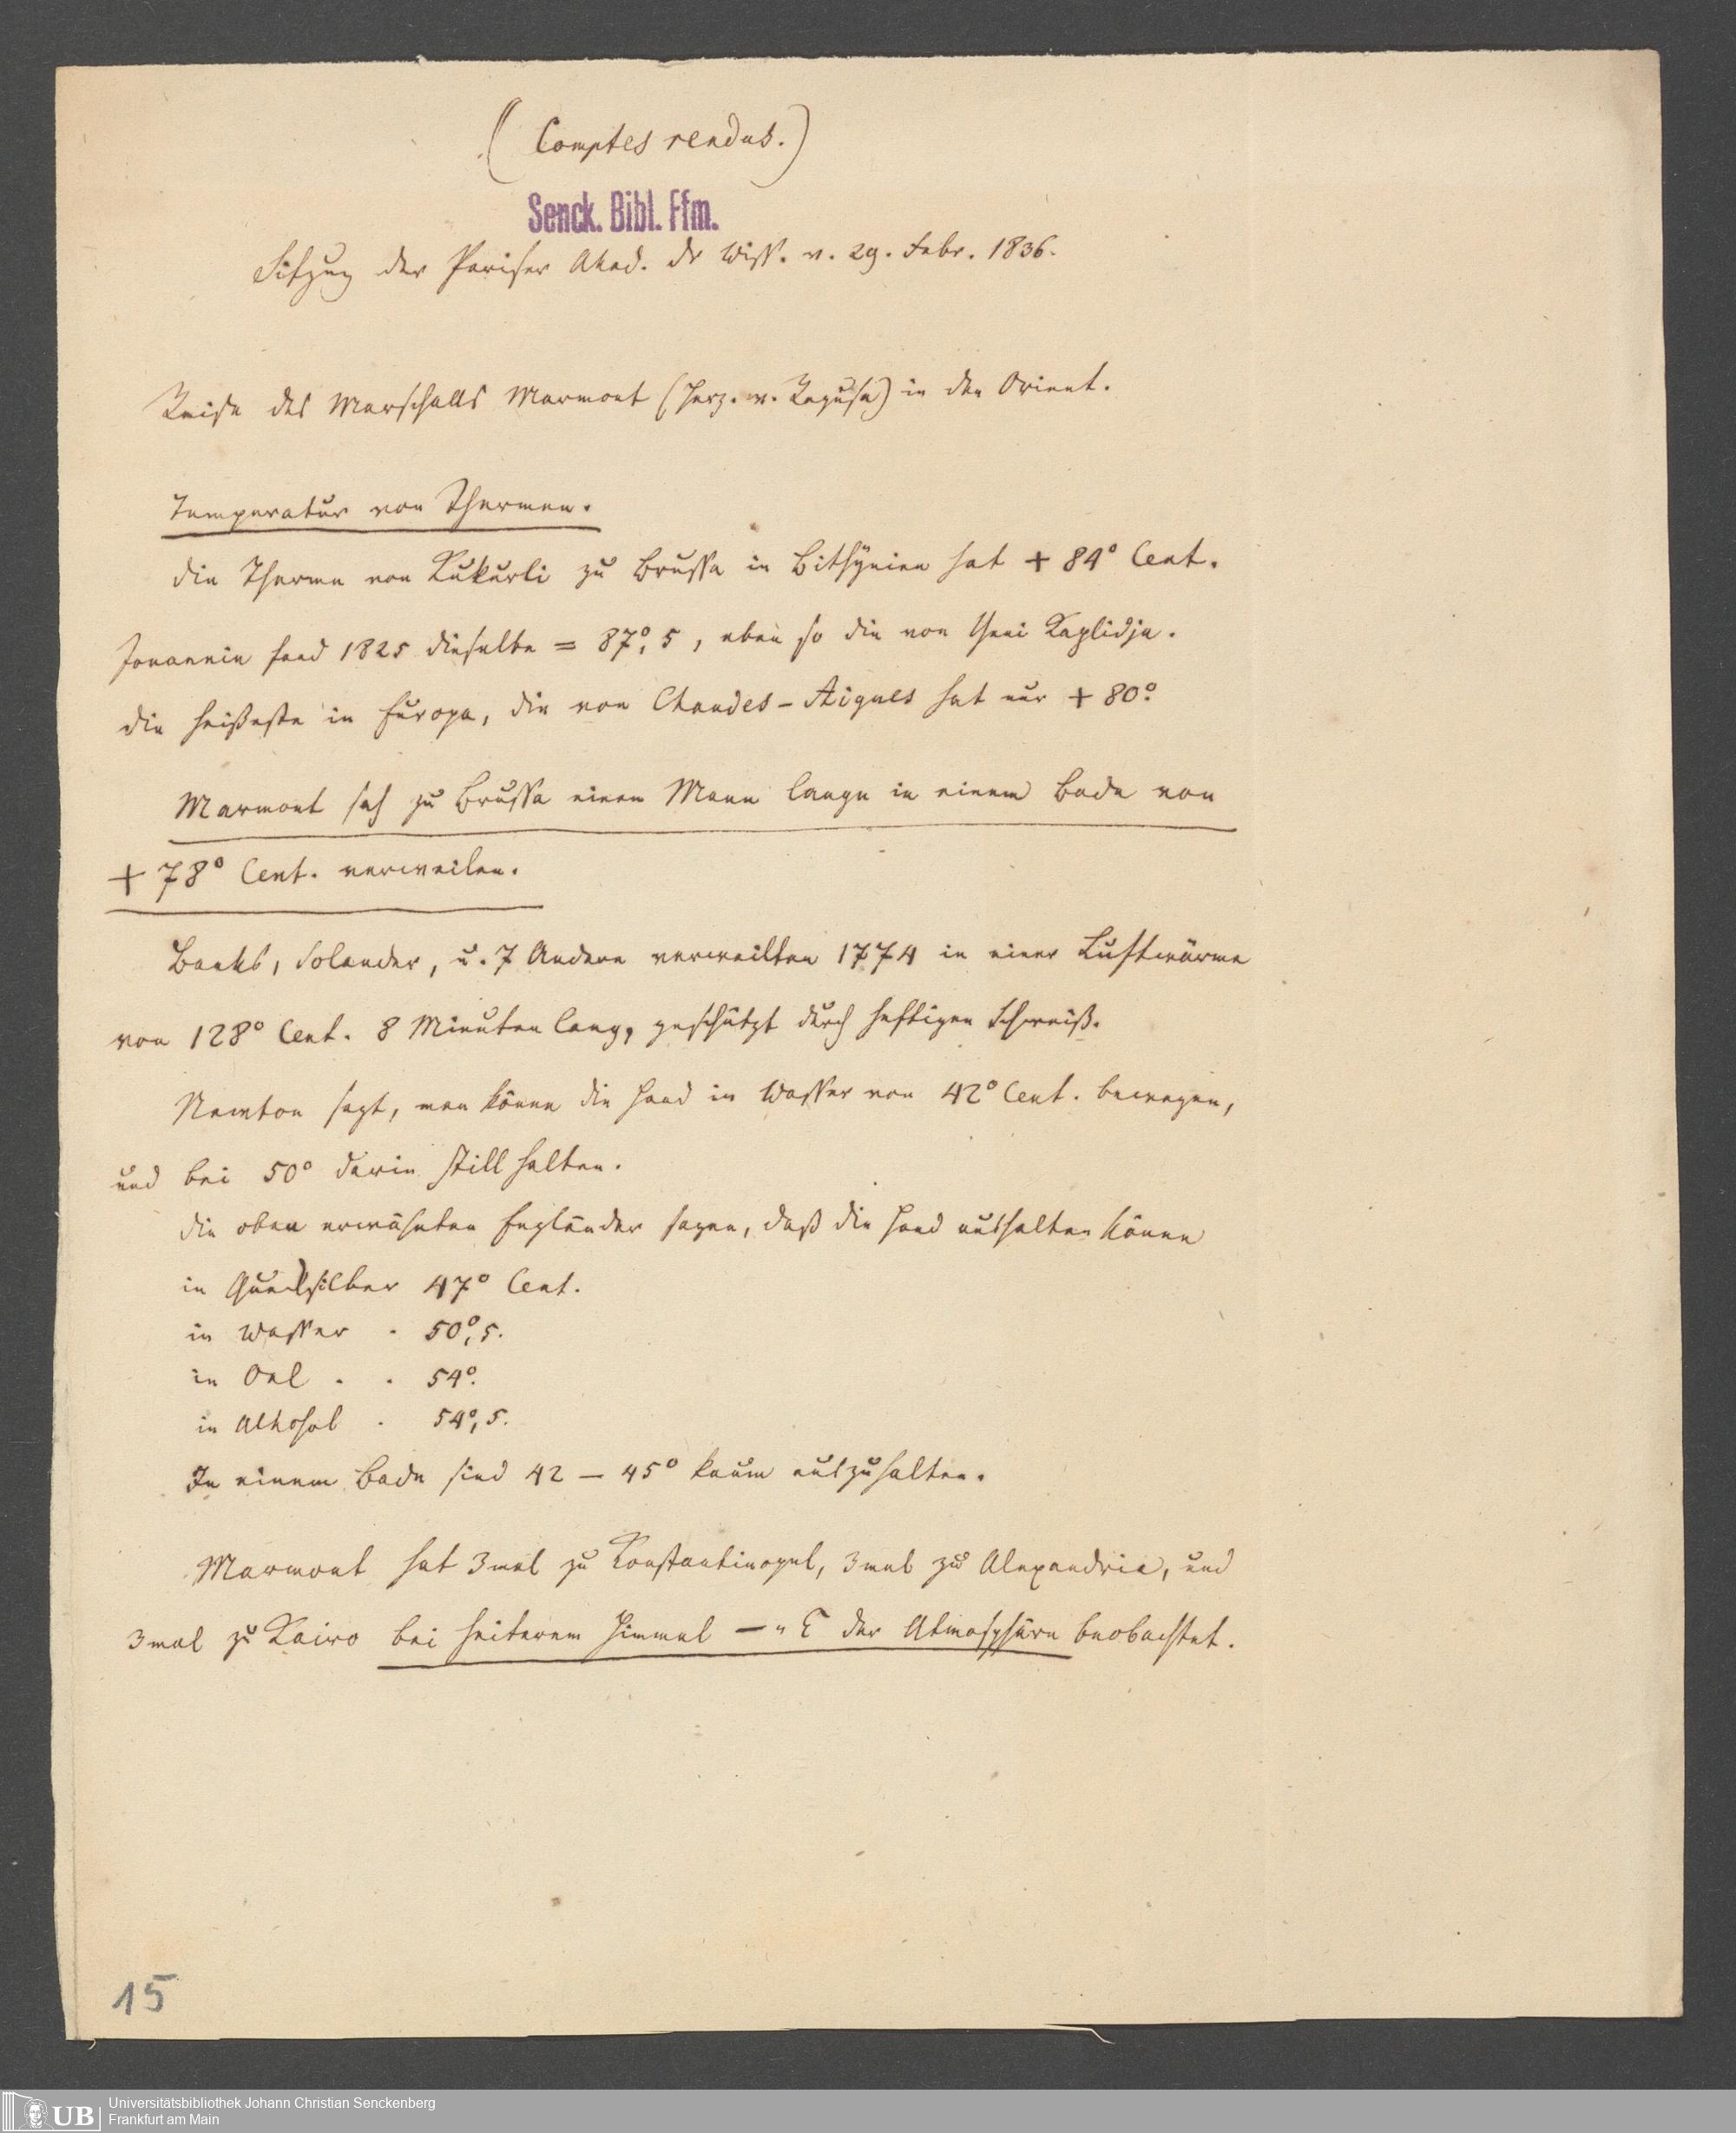 (Comptes rendus.)
Senck. Bibl. Ffm.
Sitzung der Pariser Akad. dr Wiss. v. 29. Febr. 1836.
Reise des Marschalls Marmont (Herz. v. Ragusa) in den Orient.
Temperatur von Thermen.
Die Therme von Kukurli zu Brussa in Bithynien hat + 84° Cent.
Jouannin fand 1825 dieselbe = 87°,5, eben so die von Yeni Kaplidja.
Die heißeste in Europa, die von Chaudes-Aigues hat nur + 80°.
Marmont sah zu Brussa einen Mann lange in einem Bade von
+ 78° Cent. verweilen.
Banks, Solander, u. 7 Andere verweilten 1774 in einer Luftwärme
von 128° Cent. 8 Minuten lang, geschützt durch heftigen Schweiß.
Newton sagt, man könne die Hand in Wasser von 42° Cent. bewegen,
und bei 50° darin still halten.
Die oben erwähnten Engländer sagen, daß die Hand aushalten könne
in Quecksilber 47° Cent.
in Wasser . 50°,5.
in Oel . . 54°.
in Alkohol . 54°,5.
In einem Bade sind 42 – 45° kaum auszuhalten.
Marmont hat 3mal zu Konstantinopel, 3mal zu Alexandria, und
3mal zu Kairo bei heiterem Himmel – E der Atmosphäre beobachtet.
15
UB
Universitätsbibliothek Johann Christian Senckenberg
Frankfurt am Main